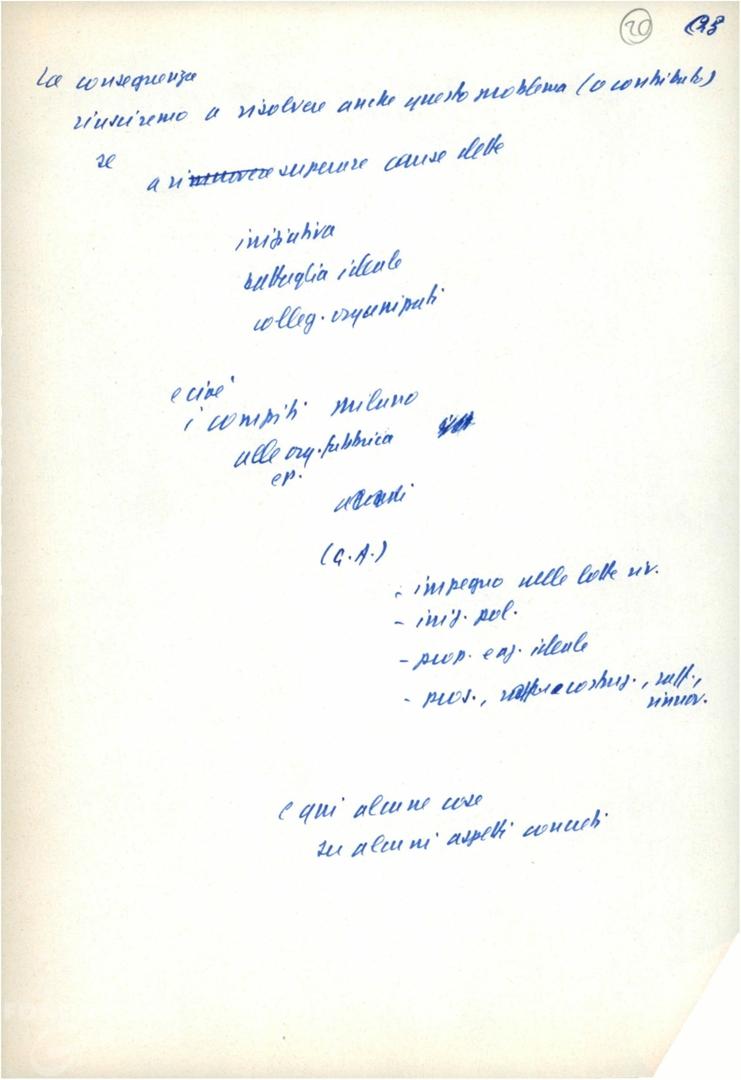 20
La conseguenza
riusciremo a risolvere anche questo problema (o contributo)
se
a rimuovere superare cause dette
iniziativa
battaglia ideale
colleg. organizzati
e cioè
i compiti milano
alle org. fabbrica
ep.
(G.A.)
- impegno nelle lotte riv.
- iniz. pol.
- prop. e az. ideale
- pros., costruz., raff.,
rinnov.
e qui alcune cose
su alcuni aspetti concreti